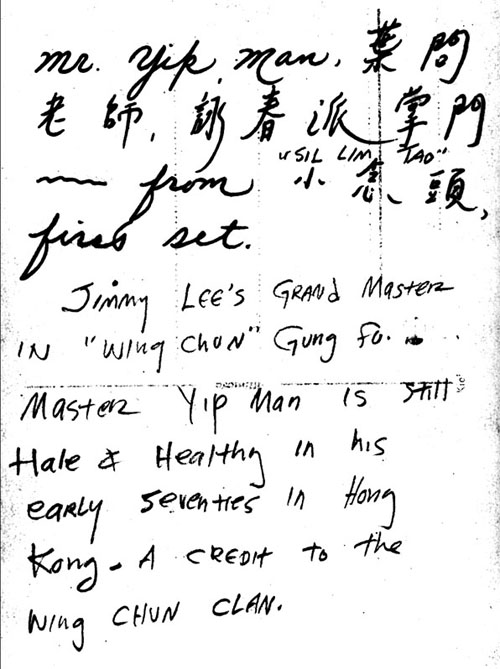 mr. Yip, man, 葉問
老師, 詠春派掌門
"SIL LIM TAO"
~~ from 小念頭,
first set.
Jimmy LEE'S GRANd Master
IN "WING CHUN" Gung fu...
Master Yip Man is still
Hale & Healthy in his
early seventies in Hong
Kong - A CREDIT to the
WING CHUN CLAN.